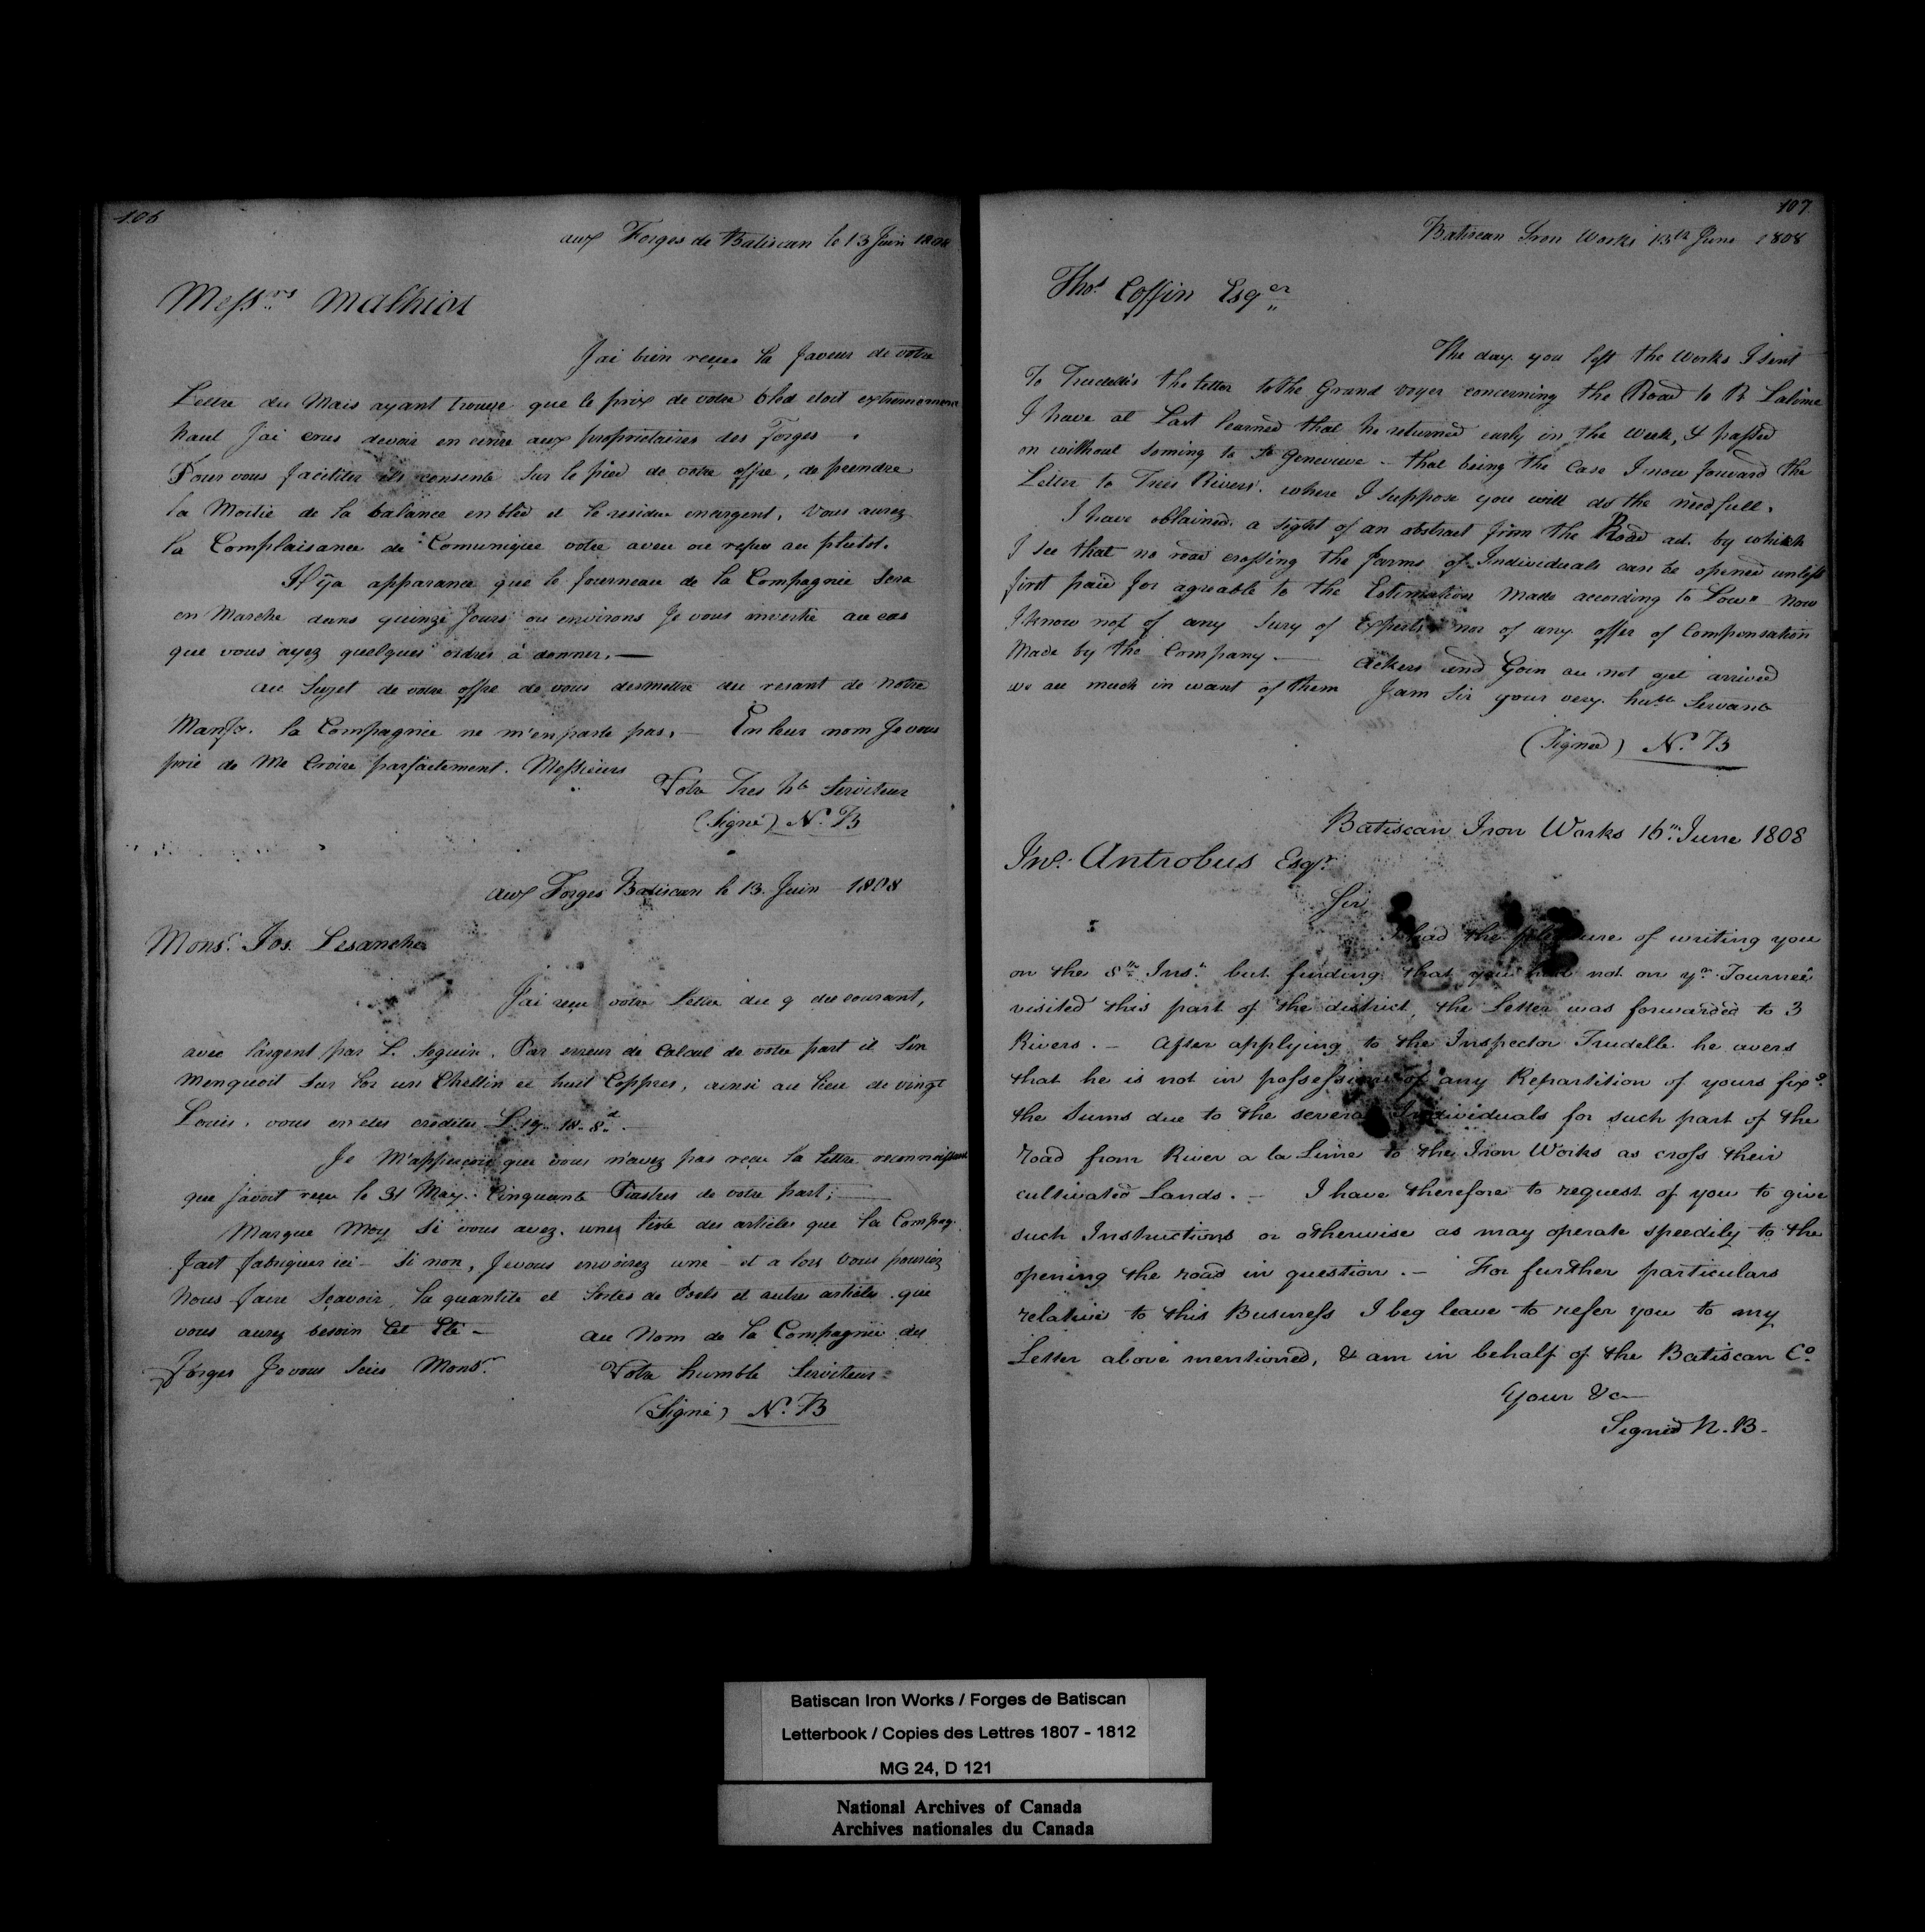 106
aux Forges de Batiscan le 13 Juin 1808
Messrs Mathiot
J'ai bien reçue la faveur de votre
Lettre du Mais ayant trouvé que le prix de votre bled etoit extremement
haut J'ai crus devoir en ecrire aux proprietaires des Forges.
Pour vous faciliter ils consente sur le pied de votre offre, de prendre
la Moitié de la balance en bled et le residue enargent, Vous aurez
la Complaisance de Comuniquer votre aveu ou refus au plutot.
Il y'a apparance que le fourneau de la Compagnie sera
en Marche dans quinze Jours ou environs Je vous invertie au cas
que vous ayez quelques ordres à donner. —
au Sujet de votre offre de vous desmettre du resant de notre
la Compagnie ne m'en parle pas. — En leur nom Je vous
prie de Me Croire parfaitement. Messieurs
Votre Tres hle Serviteur
(Signé) N. B
aux Forges Batiscan le 13 Juin 1808
Monsr. Jos. Lesancher
J'ai reçu votre Lettre du 9 du courant,
avec l'argent par L. Seguin. Par erreur de Calcul de votre part il s'en
menquoit sur l'or un Chellin et huit Coppres, ainsi au lieu de vingt
Louis, vous en etes crediter L. 19.. 18.. 8d. —
Je M'apperçois que vous n'avez pas reçu la lettre reconnoissant
que j'avoit reçu le 31 May. Cinquante Piastres de votre part; —
Marque Moy si vous avez. une liste des articles que la Compag.
fait fabriquer ici — Si non, Je vous envoirez une — et a lors vous pouriez
Nous faire Sçavoir, la quantité et Sortes de Poels et autres articles que
vous aurez besoin Cet Eté — au Nom de la Compagnie des
Forges Je vous Suis Monsr. Votre humble Serviteur
(Signé) N. B
107
Batiscan Iron Works 13th June 1808
Thos Coffin Esqer
The day you left the Works I sent
To Trudelle's the letter to the Grand voyer concerning the Road to R Lalime
I have at Last learned that he returned early in the Week, & passed
on without coming to St Genevieve — that being the Case I now forward the
Letter to Tries Rivers. where I suppose you will do the needfull.
I have obtained a sight of an abstract from the Road act. by which
I see that no road crossing the farms of Individuals can be opened unless
first paid for agreable to the Estimation Made according to Law. Now
I know not of any Jury of Experts nor of any offer of Compensation
Made by the Company. — Ackers and Goin are not yet arrived
we are much in want of them I am Sir your very huble Servant
(Signed) N. B
Batiscan Iron Works 16th June 1808
Jno. Antrobus Esqr.
Sir
I had the pleasure of writing you
on the 8th Inst. but finding that you had not on yr. Tourneé
visited this part of the district, the Letter was forwarded to 3
Rivers. — After applying to the Inspector Trudelle he avers
that he is not in possession of any Repartition of yours fixg.
the Sums due to the several Individuals for such part of the
road from River a la Lime to the Iron Works as cross their
cultivated Lands. — I have therefore to request of you to give
such Instructions or otherwise as may operate speedily to the
opening the road in question. — For further particulars
relative to this Business I beg leave to refer you to my
Letter above mentioned, & am in behalf of the Batiscan Co.
Your &c —
Signed N. B.
Batiscan Iron Works / Forges de Batiscan
Letterbook / Copies des Lettres 1807 - 1812
MG 24, D 121
National Archives of Canada
Archives nationales du Canada